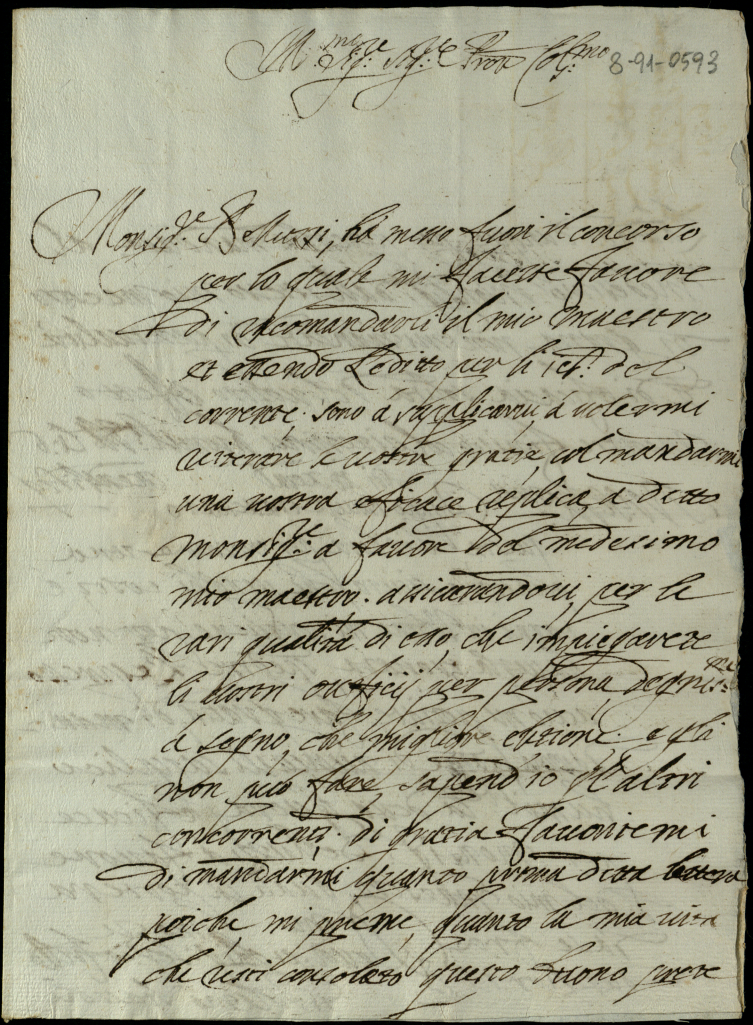 8-91-0593
Monsig.re Muzzi, hà messo fuori il concorso
per lo quale mi faceste favore
di racomandarvi il mio maestro
et essendo l'editto per li del
corrente. sono à supplicarvi à volermi
reiterare le vostre gratie, col mandarmi
una vostra eficace replica, a detto
Monsig.re a favore del medesimo
mio maestro. assicurandovi, per le
rari qualità di esso, che impiegarete
li vostri ufficij per persona degniss.ma
à segno, che migliore elettione egli
non può fare, sapend'io gl'altri
concorrenti. di gratia favoritemi
di mandarmi quanto prima detta lettera
poiche, mi preme, quanto la mia vita
che resti consolato questo buono prete